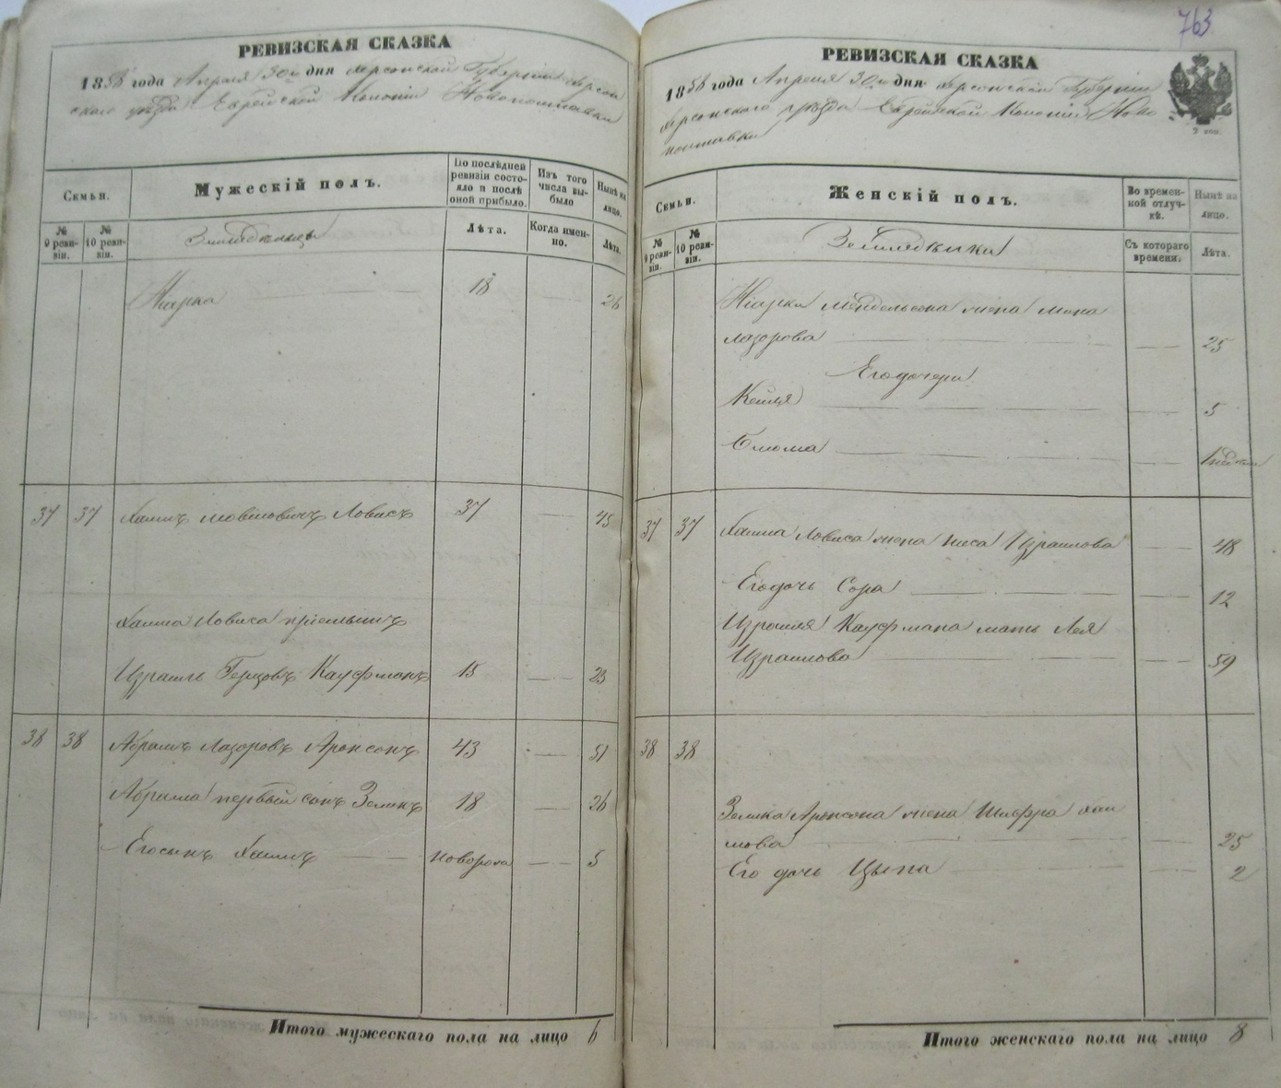 РЕВИЗСКАЯ СКАЗКА
1858 года Апреля 30го дня Херсонской Губернии Херсон
скаго уѣзда Еврейской Колонии Новополтавки
Семьи.
Мужескій полъ.
По послѣдней ревизіи состояло и послѣ оной прибыло.
Изъ того числа выбыло
Нынѣ на лицо.
№ 9 ревизіи.
№ 10 ревизіи.
Земледѣльцы
Лѣта.
Когда именно.
Лѣта.
18 26
37 37 Хаимъ Ловисъ 37 45
Хаима Ловиса пріемышъ
Израиль Герцовъ Кауфманъ 15 23
38 38 Абрамъ Лазоровъ Аронсонъ 43 51
Абрама первый сынъ Зеликъ 18 26
Его сынъ Хаимъ новорож 5
Итого мужескаго пола на лицо 6
763
РЕВИЗСКАЯ СКАЗКА
1858 года Апреля 30го дня Херсонской Губернии
Херсонскаго уѣзда Еврейской Колонии Ново
полтавки
2 коп.
Семьи.
Женскій полъ.
Во временной отлучкѣ.
Нынѣ на лицо.
№ 9 ревизіи.
№ 10 ревизіи.
Земледѣлки
Съ котораго времени.
Лѣта.
Мендельсона жена
Лазорова 25
Его дочери
Кейля 5
Блюма
37 37 Хаима Ловиса жена Израилова 48
Его дочь Сора 12
Израиля Кауфмана мать Лея
Израилова 59
38 38
Зелика Аронсона жена Шифра Хаи
мова 25
Его дочь Цыпа 2
Итого женскаго пола на лицо 8